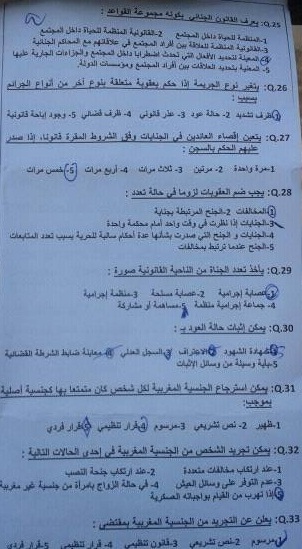 Q.25: يعرف القانون الجنائي بكونه مجموعة القواعد :
1-المنظمة للحياة داخل المجتمع 2-القانونية المنظمة للحياة داخل المجتمع
3-القانونية المنظمة للعلاقة بين أفراد المجتمع في علاقاتهم مع المحاكم الجنائية
4-المعنية لتحديد الأفعال التي تحدث اضطرابا داخل المجتمع والجزاءات الجارية عليها
5- المعنية بتحديد العلاقات بين أفراد المجتمع ومؤسسات الدولة.
Q.26: يتغير نوع الجريمة إذا حكم بعقوبة متعلقة بنوع آخر من أنواع الجرائم
بسبب :
1-ظرف تشديد 2- حالة عود 3- عذر قانوني 4- ظرف قضائي 5- وجود إباحة قانونية
Q.27: يتعين إقصاء العائدين في الجنايات وفق الشروط المقررة قانونا، إذا صدر
عليهم الحكم بالسجن :
1-مرة واحدة 2- مرتين 3- ثلاث مرات 4- أربع مرات 5-خمس مرات
Q.28: يجب ضم العقوبات لزوما في حالة تعدد :
1-المخالفات 2-الجنح المرتبطة بجناية
3-الجنايات إذا نظرت في وقت واحد أمام محكمة واحدة
4-الجنايات و الجنح التي صدرت بشأنها عدة أحكام سالبة للحرية بسبب تعدد المتابعات
5-الجنح عندما ترتبط بمخالفات
Q.29: يأخذ تعدد الجناة من الناحية القانونية صورة :
1-عصابة إجرامية 2-عصابة مسلحة 3-منظمة إجرامية
4- جماعة إجرامية منظمة 5-مساهمة أو مشاركة
Q.30: يمكن إثبات حالة العود بـ :
1-شهادة الشهود 2-الاعتراف 3-السجل العدلي 4-معاينة ضابط الشرطة القضائية
5-بأية وسيلة من وسائل الإثبات
Q.31: يمكن استرجاع الجنسية المغربية لكل شخص كان متمتعا بها كجنسية أصلية
بموجب:
1-ظهير 2- نص تشريعي 3-مرسوم 4-قرار تنظيمي 5-قرار فردي
Q.32: يمكن تجريد الشخص من الجنسية المغربية في إحدى الحالات التالية :
1-عند ارتكاب مخالفات متعددة 2-عند ارتكاب جنحة النصب
3-عند عدم التوفر على وسائل العيش 4- في حالة الزواج بامرأة من جنسية غير مغربية
5-إذا تهرب من القيام بواجباته العسكرية
Q.33: يعلن عن التجريد من الجنسية المغربية بمقتضى :
1-مرسوم 2- نص تشريعي 3-قانون تنظيمي 4- قرار تنظيمي 5-قرار فردي